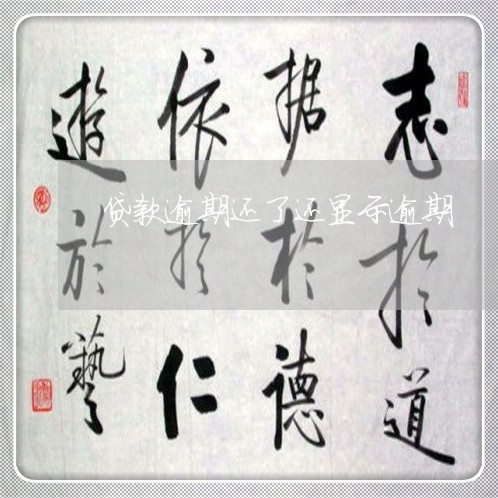 志於道
据於德
依於仁
遊於藝
贷款逾期还了还显示逾期